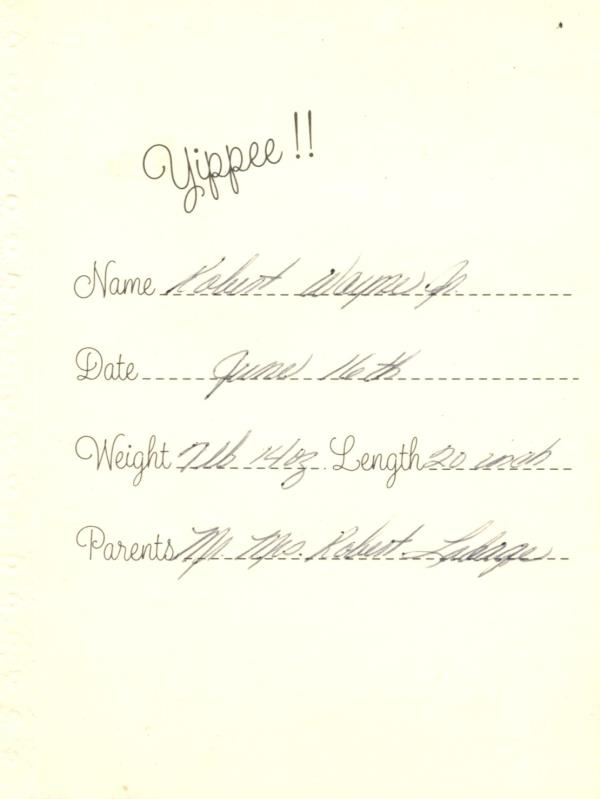 Yippee!!
Name Robert Wayne Jr.
Date June 16th
Weight 7 lb 14 oz. Length 20 inch
Parents Mr. Mrs. Robert